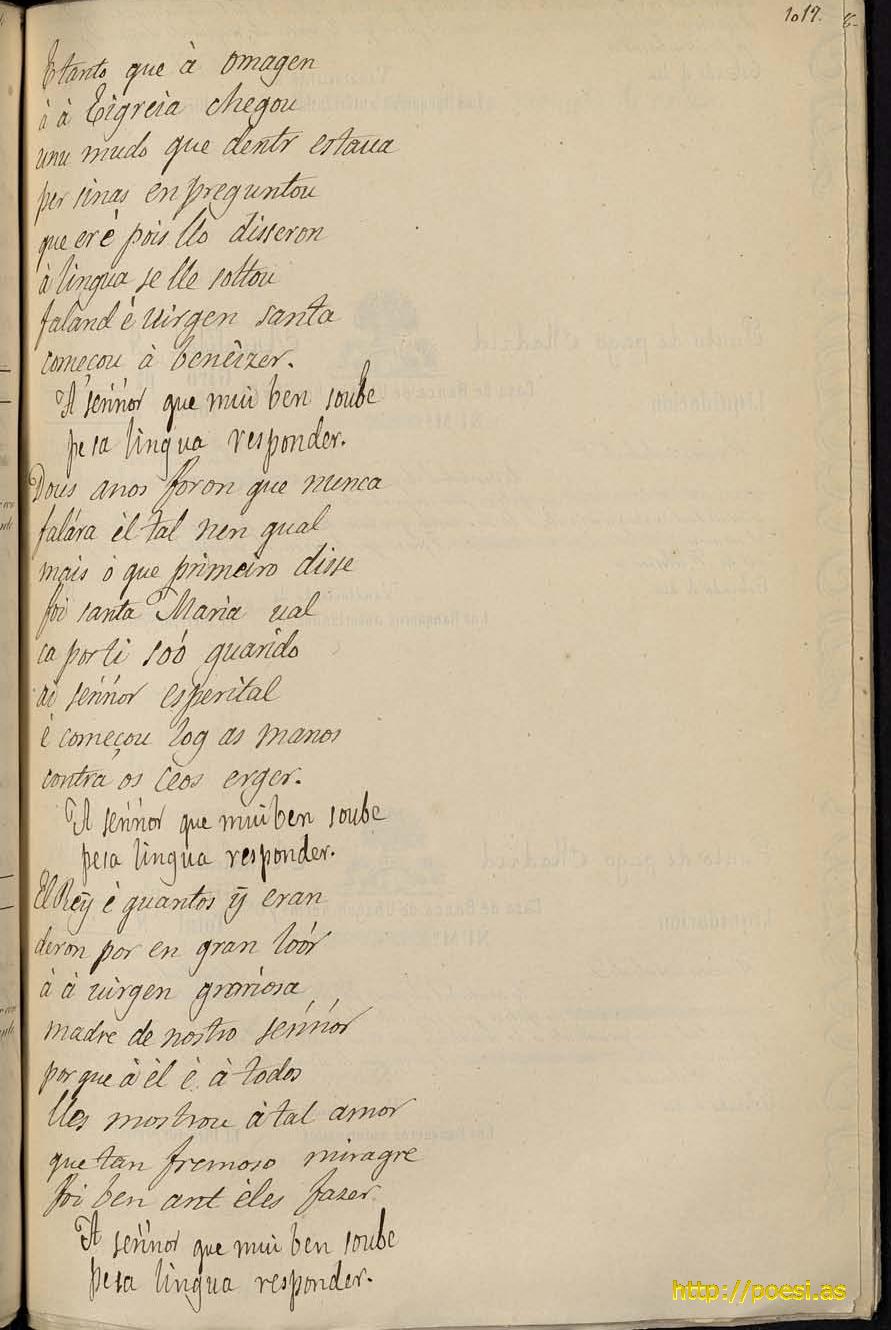 1017.
E tanto que à omagen
à à Eigreia chegou
unu mudo que dentr estaua
per sinas en preguntou
que er é pois llo disseron
à lingua se lle soltou
faland é uirgen santa
começou à beneizer.
A sen'n'or que mui ben soube
pe sa lingua responder.
Dous anos foron que nunca
falára èl tal nen qual
mais ò que primeiro disse
foi santa Maria ual
ca por ti soó guarido
ai sen'n'or esperital
è começou log as manos
contra os ceos erger.
A sen'n'or que mui ben soube
pe sa lingua responder.
El Rey è quantos ÿ eran
deron por en gran loór
à à uirgen graciosa
madre de nostro sen'n'or
por que à èl è à todos
lles mostrou à tal amor
que tan fremoso miragre
foi ben ant èles fazer
A sen'n'or que mui ben soube
pe sa lingua responder.
http://poesi.as